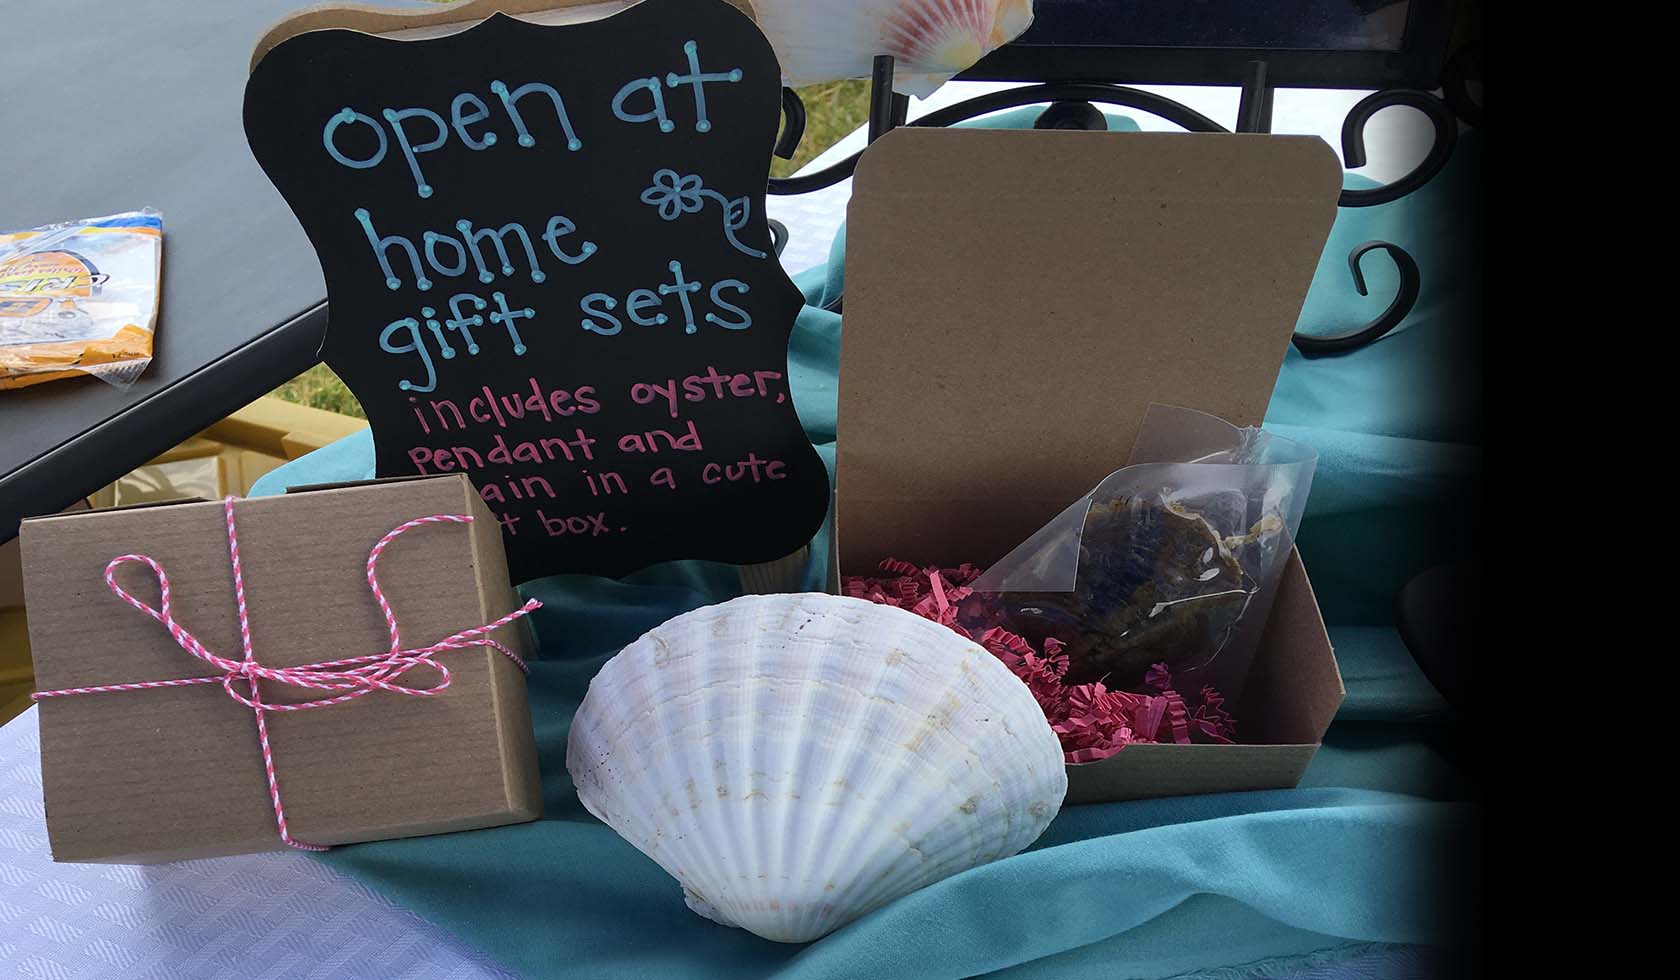 open at
home
gift sets
includes oyster,
pendant and
ain in a cute
t box.